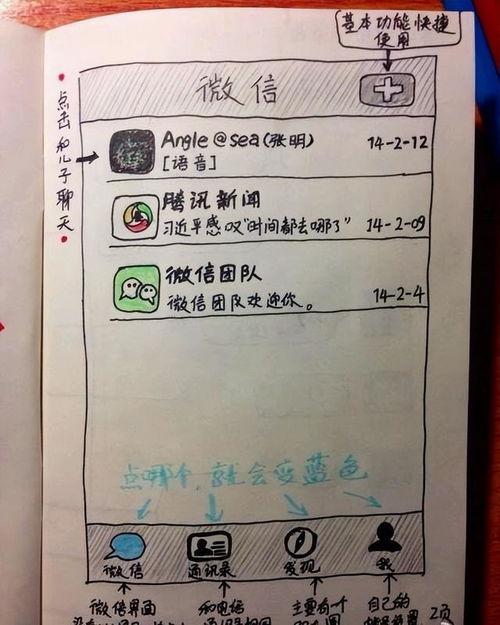 基本功能快捷
使用
微信
点击和儿子聊天
Angle@sea(张明) 14-2-12
[语音]
腾讯新闻
习近平感叹"时间都去哪了" 14-2-09
微信团队
微信团队欢迎你。 14-2-4
点哪个,就会变蓝色
微信 通讯录 发现 我
微信界面 和电话 主要有一个 自己的
2页